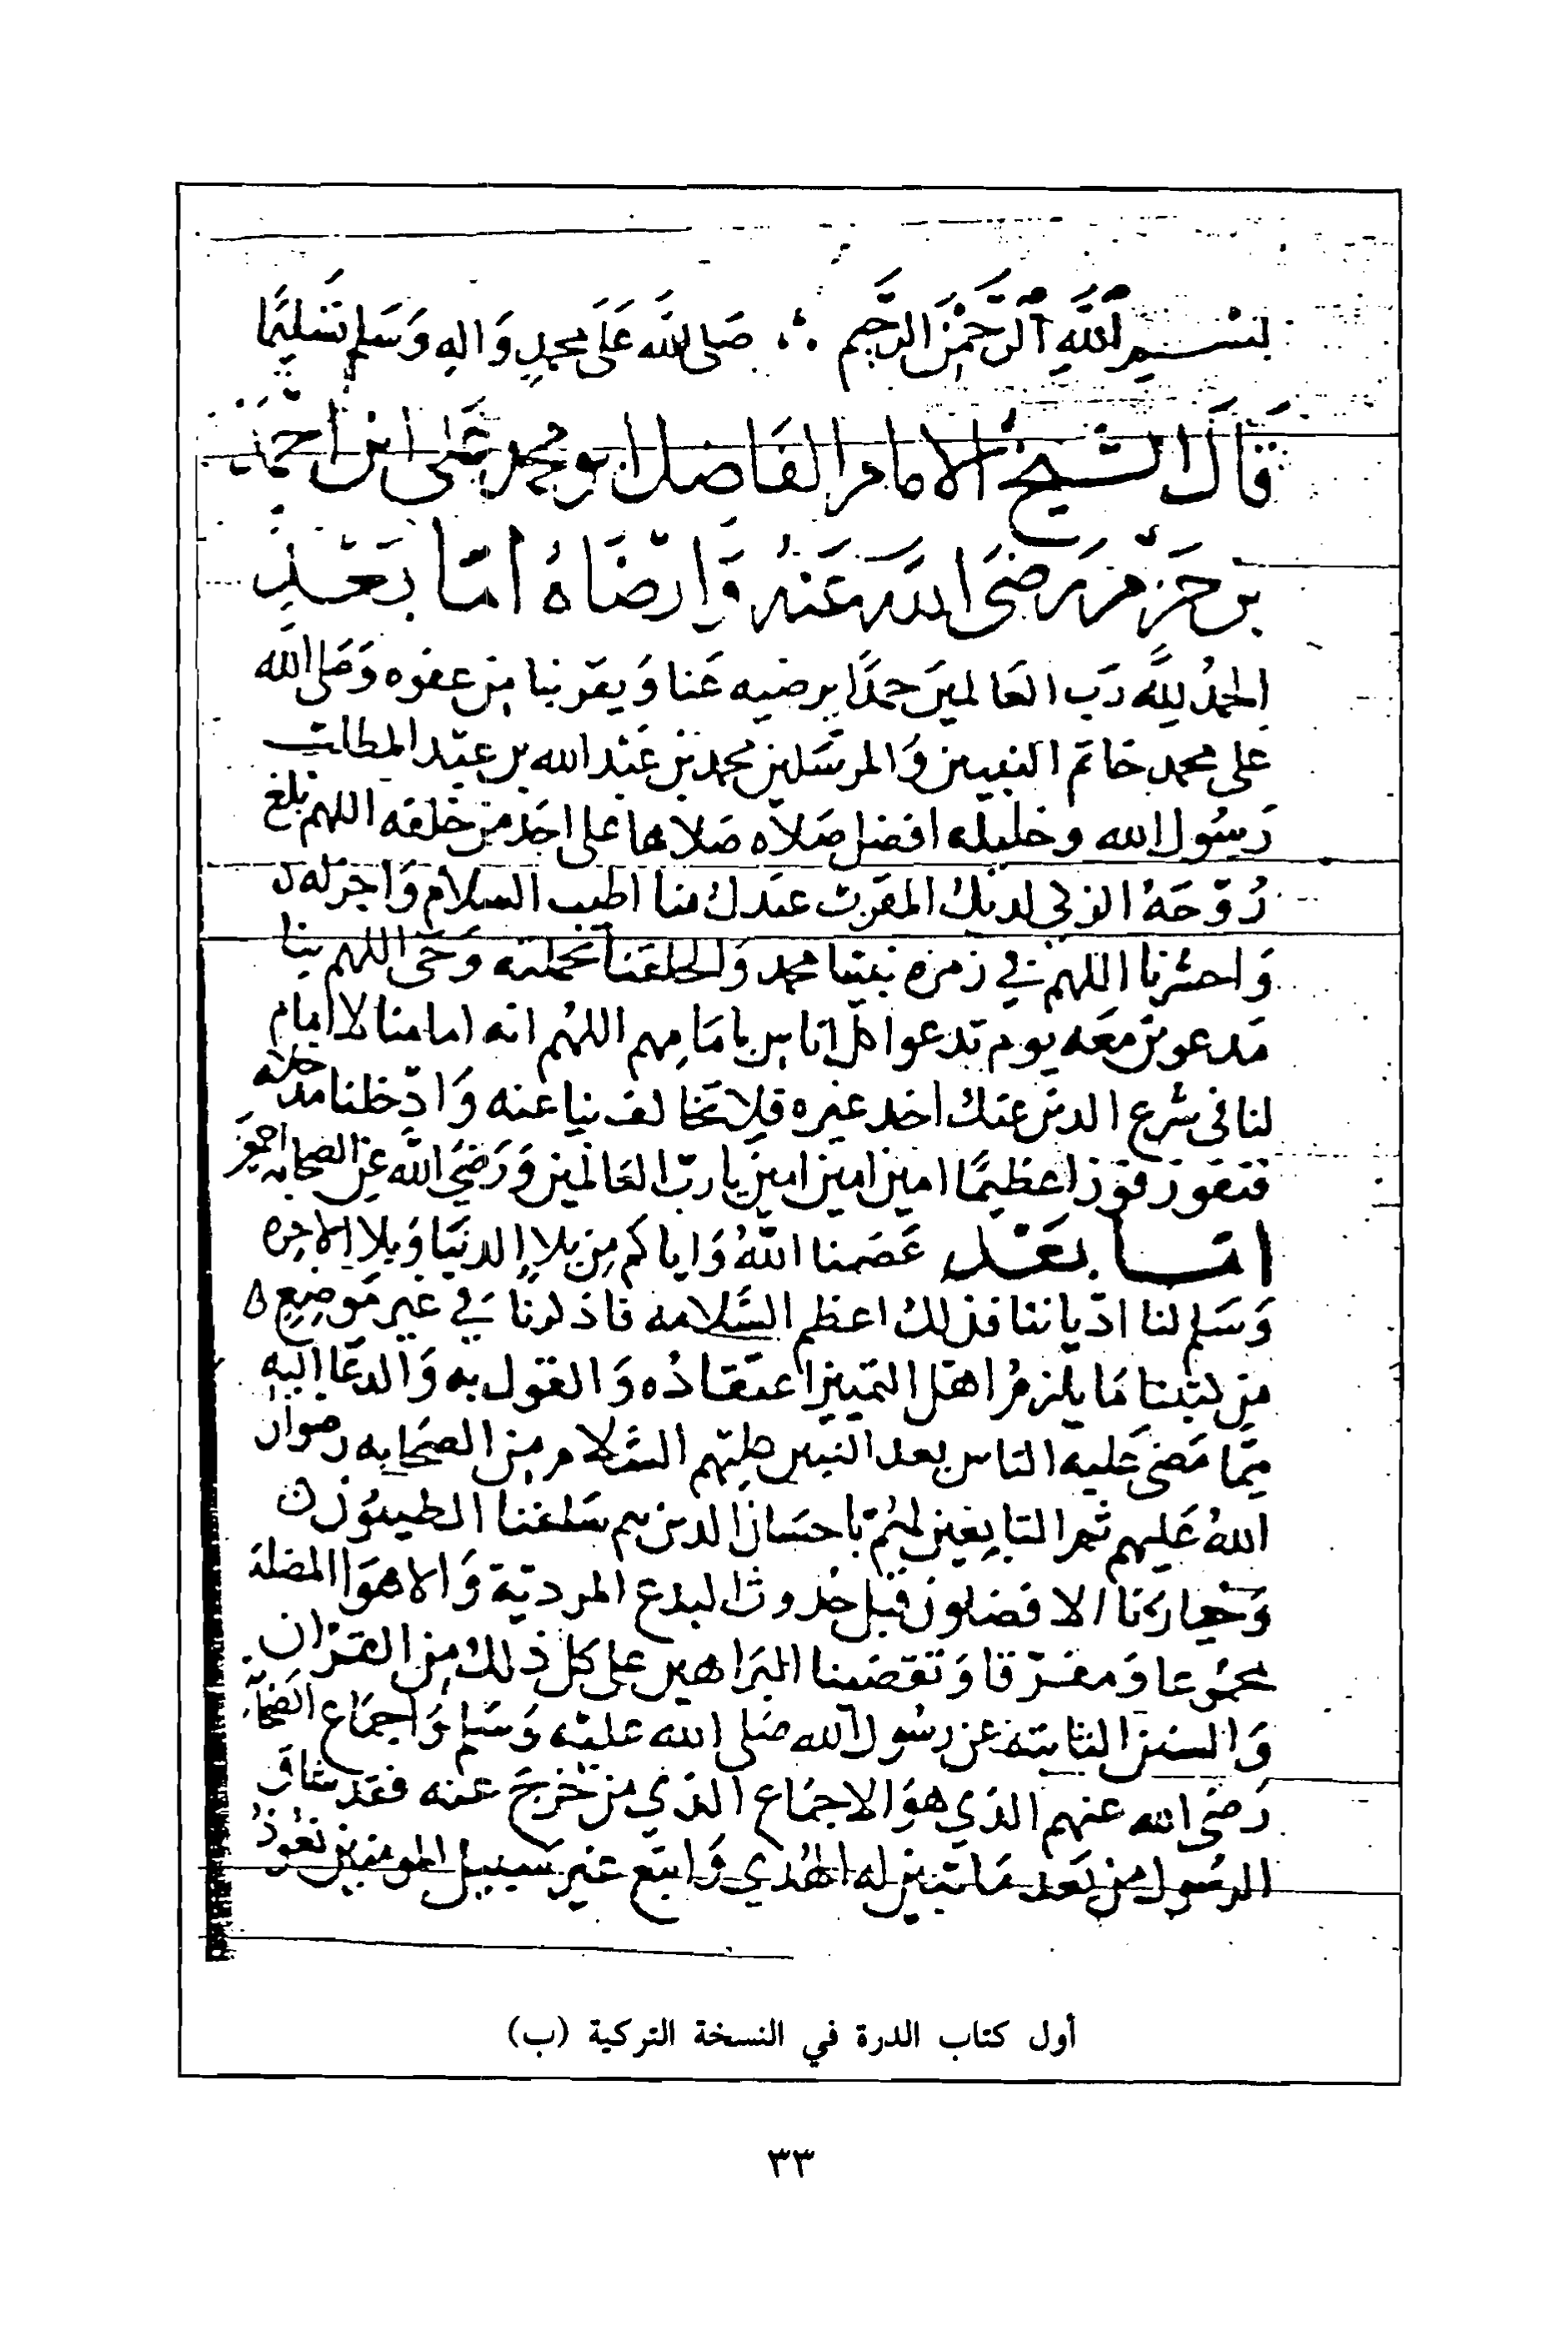 بسم الله الرحمن الرحيم صلى الله على محمد واله وسلم تسليما
قال الشيخ الامام الفاضل ابو محمد على ابن احمد
بن حزم رضى الله عنه وارضاه اما بعد
الحمد لله رب العالمين حمدا يرضيه عنا ويقربنا من عفوه وصلى الله
على محمد خاتم النبيين والمرسلين محمد بن عبد الله بن عبد المطلب
رسول الله وخليله افضل صلاه صلاها على احد من خلقه اللهم بلغ
روحه الزكي لديك المقرب عندك منا اطيب السلام واجزله
واحشرنا اللهم في زمره نبينا محمد والحقنا بجملته وحى اللهم بنا
مدعوين معه يوم تدعوا كل اناس بامامهم اللهم انه امامنا لا امام
لنا فى شرع الدين عنك احد غيره فلا تخالف بنا عنه وادخلنا مدخله
فنفوز فوزا عظيما امين امين امين يا رب العالمين ورضي الله عن الصحابه اجمعين
اما بعد عصمنا الله واياكم من بلا الدنيا وبلا الاخره
وسلم لنا ادياننا فذلك اعظم السلامه فاذكرنا في غير موضع
من كتبنا ما يلزم اهل التمييز اعتقاده والقول به والدعا اليه
مما مضى عليه الناس بعد النبيين عليهم السلام من الصحابه رضوان
الله عليهم ثم التابعين لهم باحسان الدين هم سلفنا الطيبون
وخيارنا الافضلون قبل حدوث البدع المردية والاهوا المضلة
مجموعا ومفرقا وتقصينا البراهين على كل ذلك من القران
والسنن الثابتة عن رسول الله صلى الله عليه وسلم واجماع الصحابة
رضى الله عنهم الذي هو الاجماع الذي من خرج عنه فقد شاقق
الرسول من بعد ما تبين له الهدي واتبع غير سبيل المومنين نعوذ
أول كتاب الدرة في النسخة التركية (ب)
٣٣